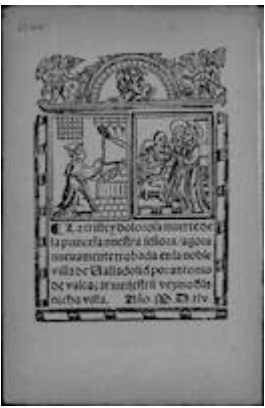 La triste y dolorosa muerte de
la princesa nuestra señora / agora
nueuamente trobada en la noble
villa de Valladolid por antonio
de valca; vezino de
dicha villa. Año. M. D. xlv.